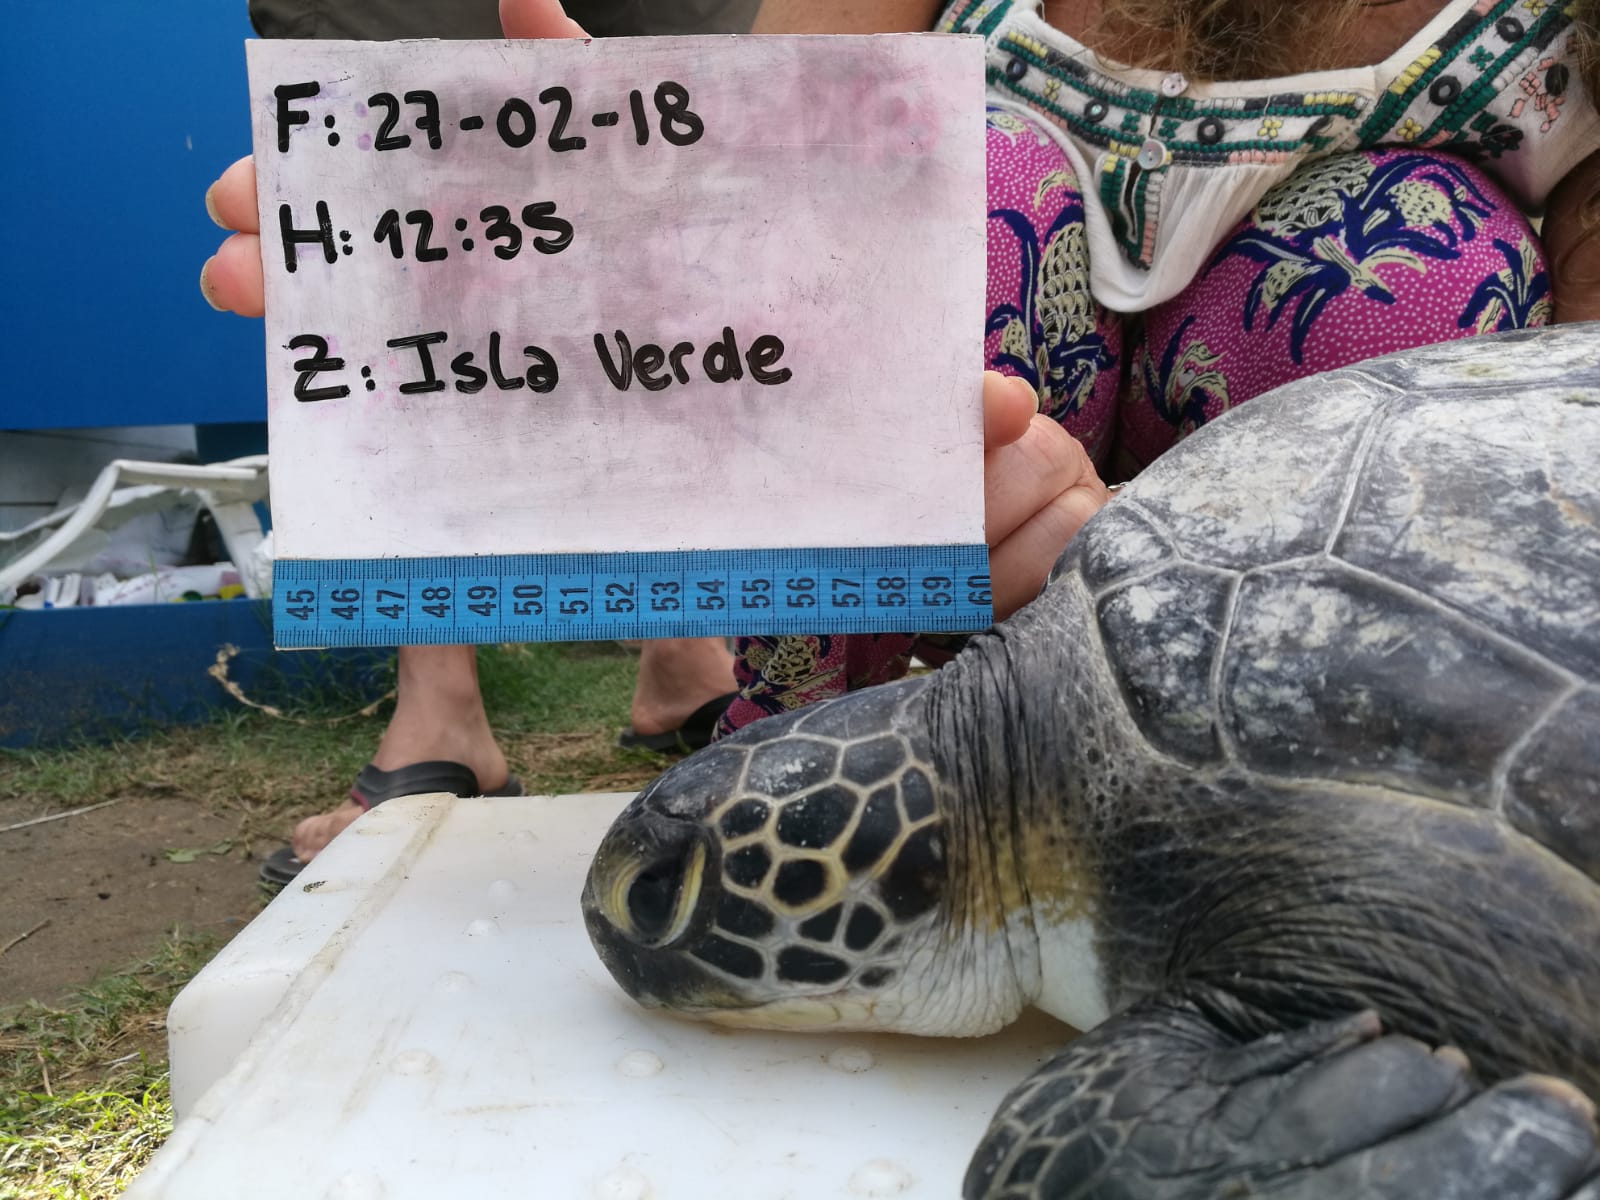 F: 27-02-18
H: 12:35
Z: Isla Verde
45 46 47 48 49 50 51 52 53 54 55 56 57 58 59 60